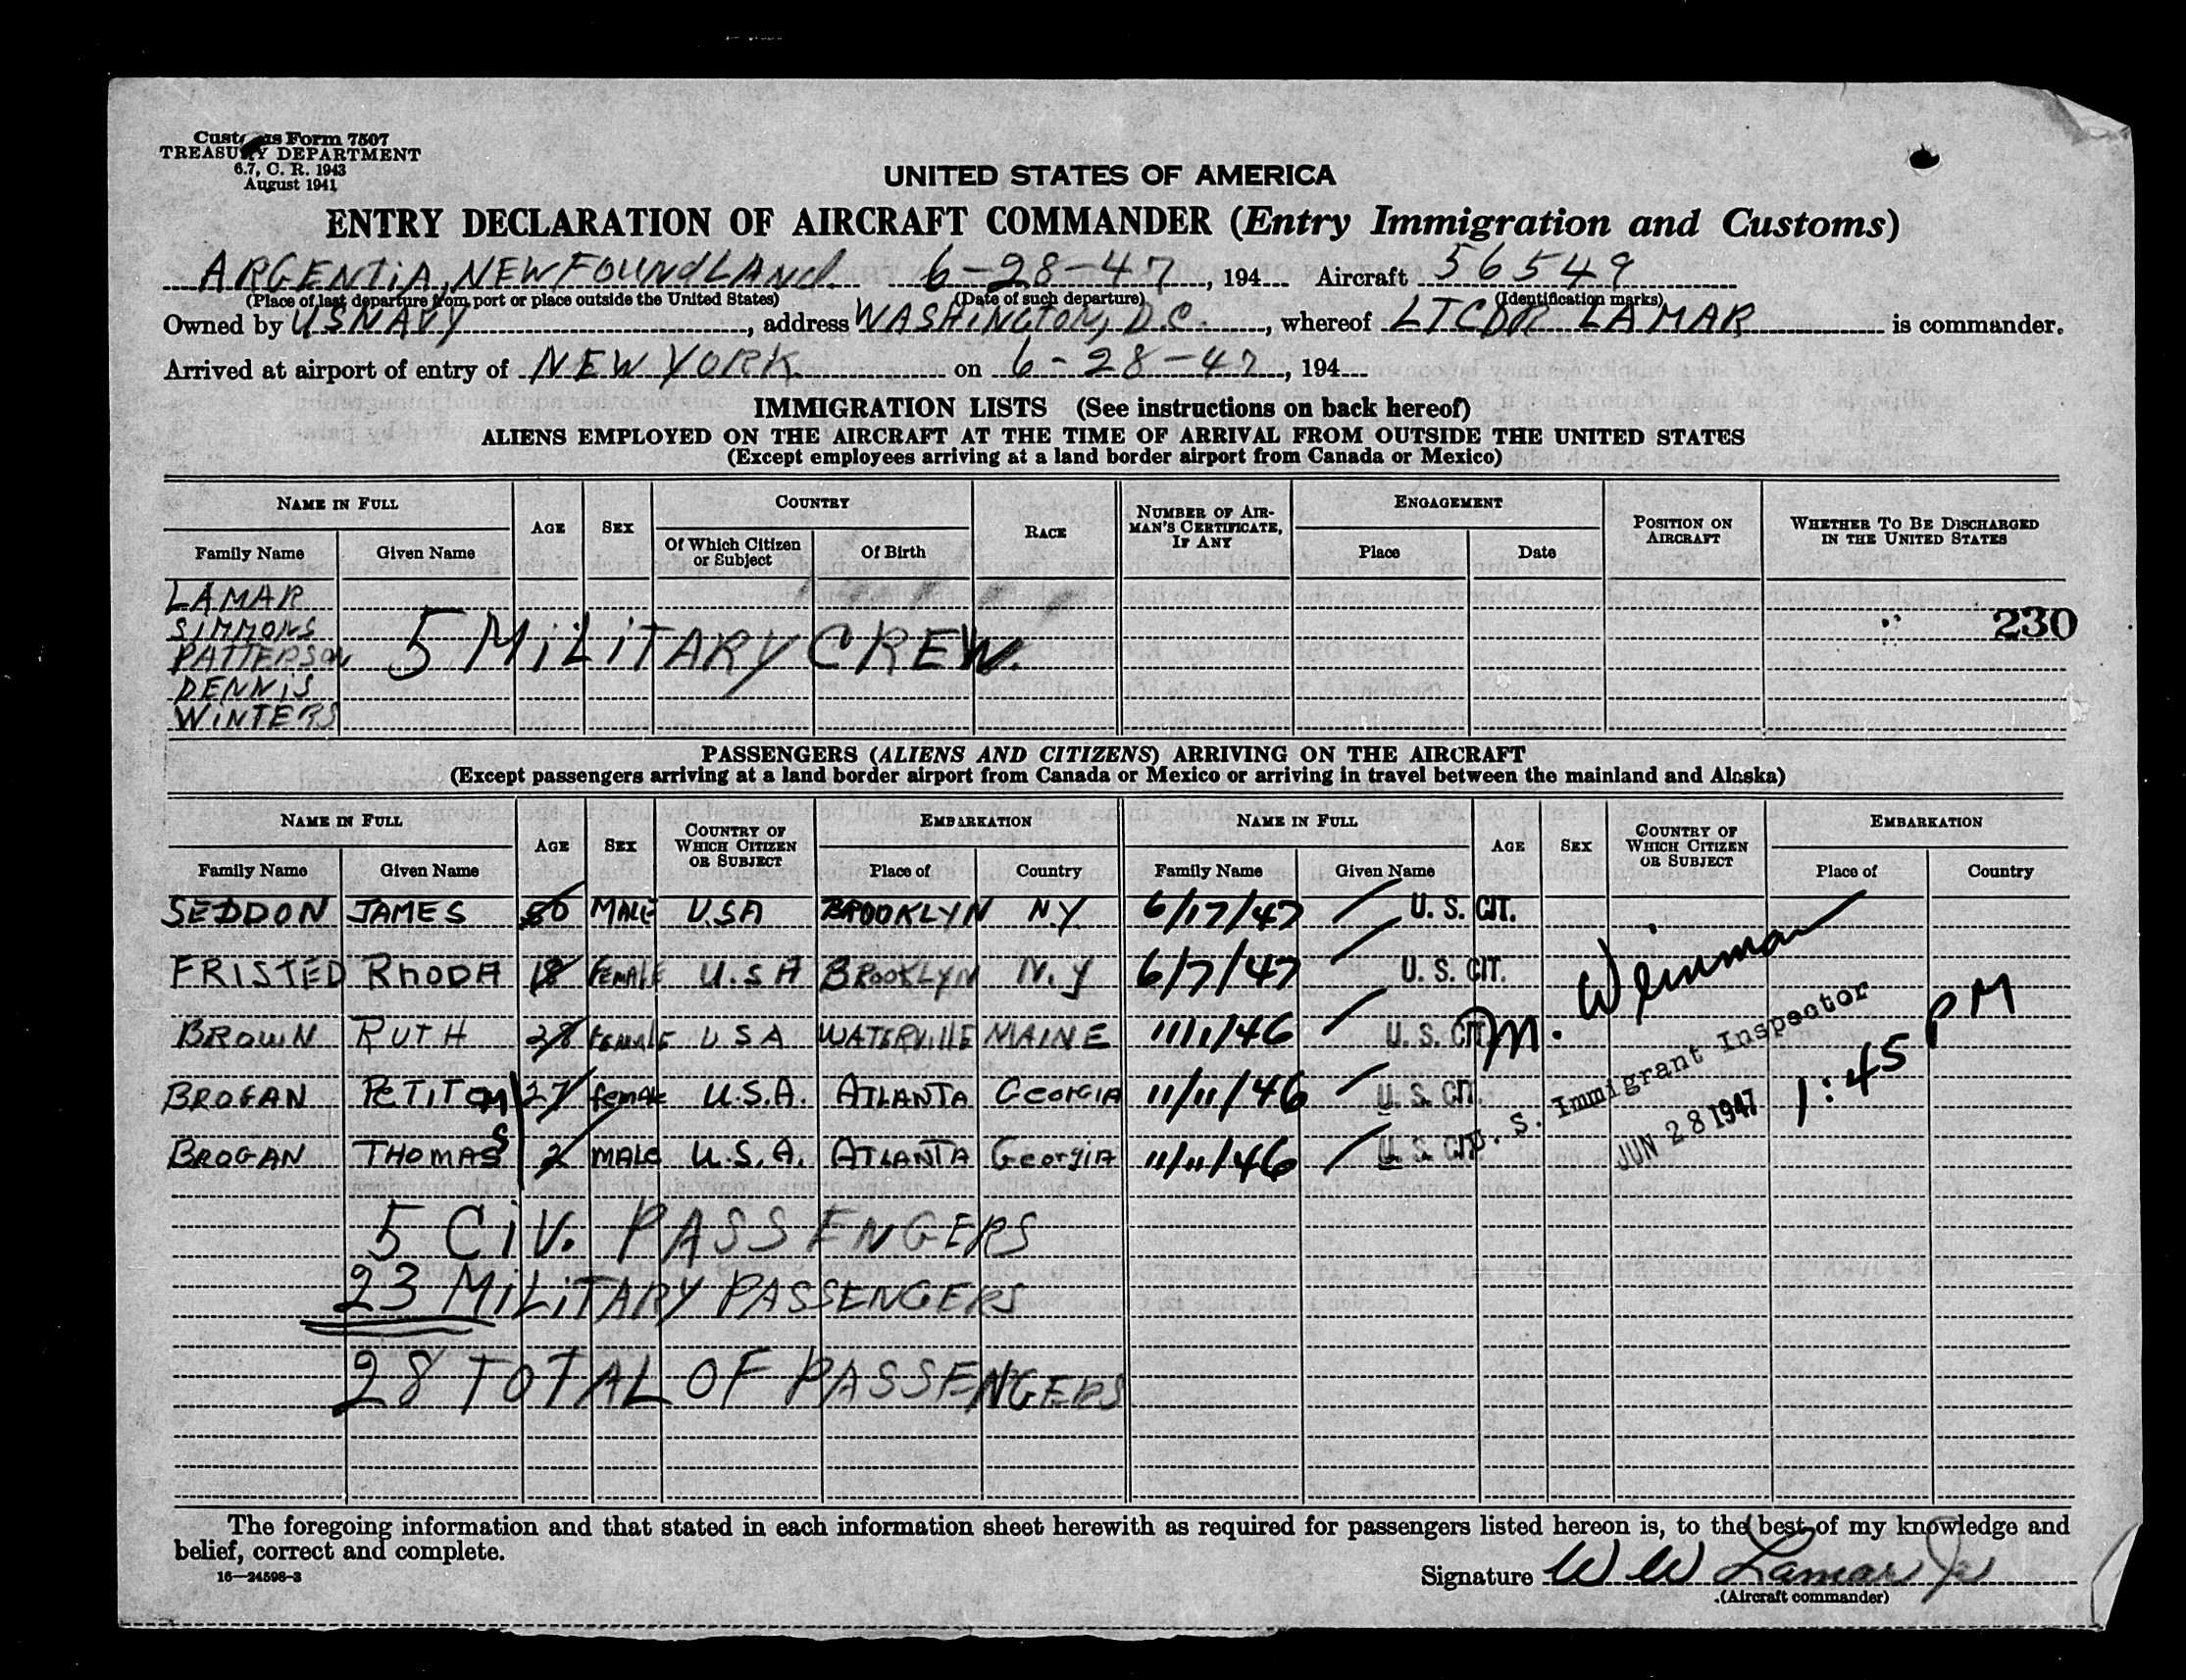 Customs Form 7507
TREASURY DEPARTMENT
6.7, C. R. 1943
August 1941
UNITED STATES OF AMERICA
ENTRY DECLARATION OF AIRCRAFT COMMANDER (Entry Immigration and Customs)
ARGENTIA, NEWFOUNDLAND 6-28-47, 194 Aircraft 56549
(Place of last departure from port or place outside the United States) (Date of such departure) (Identification marks)
Owned by USNAVY, address WASHINGTON, D.C., whereof LTCDR LAMAR is commander.
Arrived at airport of entry of NEW YORK on 6-28-47, 194
IMMIGRATION LISTS (See instructions on back hereof)
ALIENS EMPLOYED ON THE AIRCRAFT AT THE TIME OF ARRIVAL FROM OUTSIDE THE UNITED STATES
(Except employees arriving at a land border airport from Canada or Mexico)
NAME IN FULL AGE SEX COUNTRY RACE NUMBER OF AIRMAN'S CERTIFICATE, IF ANY ENGAGEMENT POSITION ON AIRCRAFT WHETHER TO BE DISCHARGED IN THE UNITED STATES
Family Name Given Name Of Which Citizen or Subject Of Birth Place Date
LAMAR
SIMMONS 230
PATTERSON 5 MiLiTARY CREW.
DENNiS
WiNTERS
PASSENGERS (ALIENS AND CITIZENS) ARRIVING ON THE AIRCRAFT
(Except passengers arriving at a land border airport from Canada or Mexico or arriving in travel between the mainland and Alaska)
NAME IN FULL AGE SEX COUNTRY OF WHICH CITIZEN OR SUBJECT EMBARKATION NAME IN FULL AGE SEX COUNTRY OF WHICH CITIZEN OR SUBJECT EMBARKATION
Family Name Given Name Place of Country Family Name Given Name Place of Country
SEDDON JAMES 50 MALE U.SA BROOKLYN N.Y. 6/17/47 U. S. CIT.
FRISTED RhODA 18 FEMALE U.SA BROOKLYN N.Y 6/7/47 U. S. CIT.
BROWN RUTH 38 FEMALE USA WATERVIllE MAINE 11/1/46 U. S. CIT.
M. Weinman
BROGAN PETITOM 27 female U.S.A. ATLANTA GeorGIA 11/11/46 U. S. CIT.
BROGAN THOMAS S 2 MALe U.S.A. ATLANTA GeorgiA 11/11/46 U. S. CIT.
U. S. Immigrant Inspector
JUN 28 1947 1:45 PM
5 CiV. PASSENGERS
23 MiLiTARY PASSENGERS
28 TOTAL OF PASSENGERS
The foregoing information and that stated in each information sheet herewith as required for passengers listed hereon is, to the best of my knowledge and
belief, correct and complete.
16—24598-3
Signature W W Lamar Jr
(Aircraft commander)